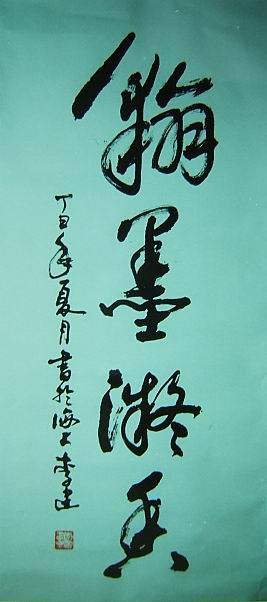 翰墨凝香
丁丑年夏月書於海上李建